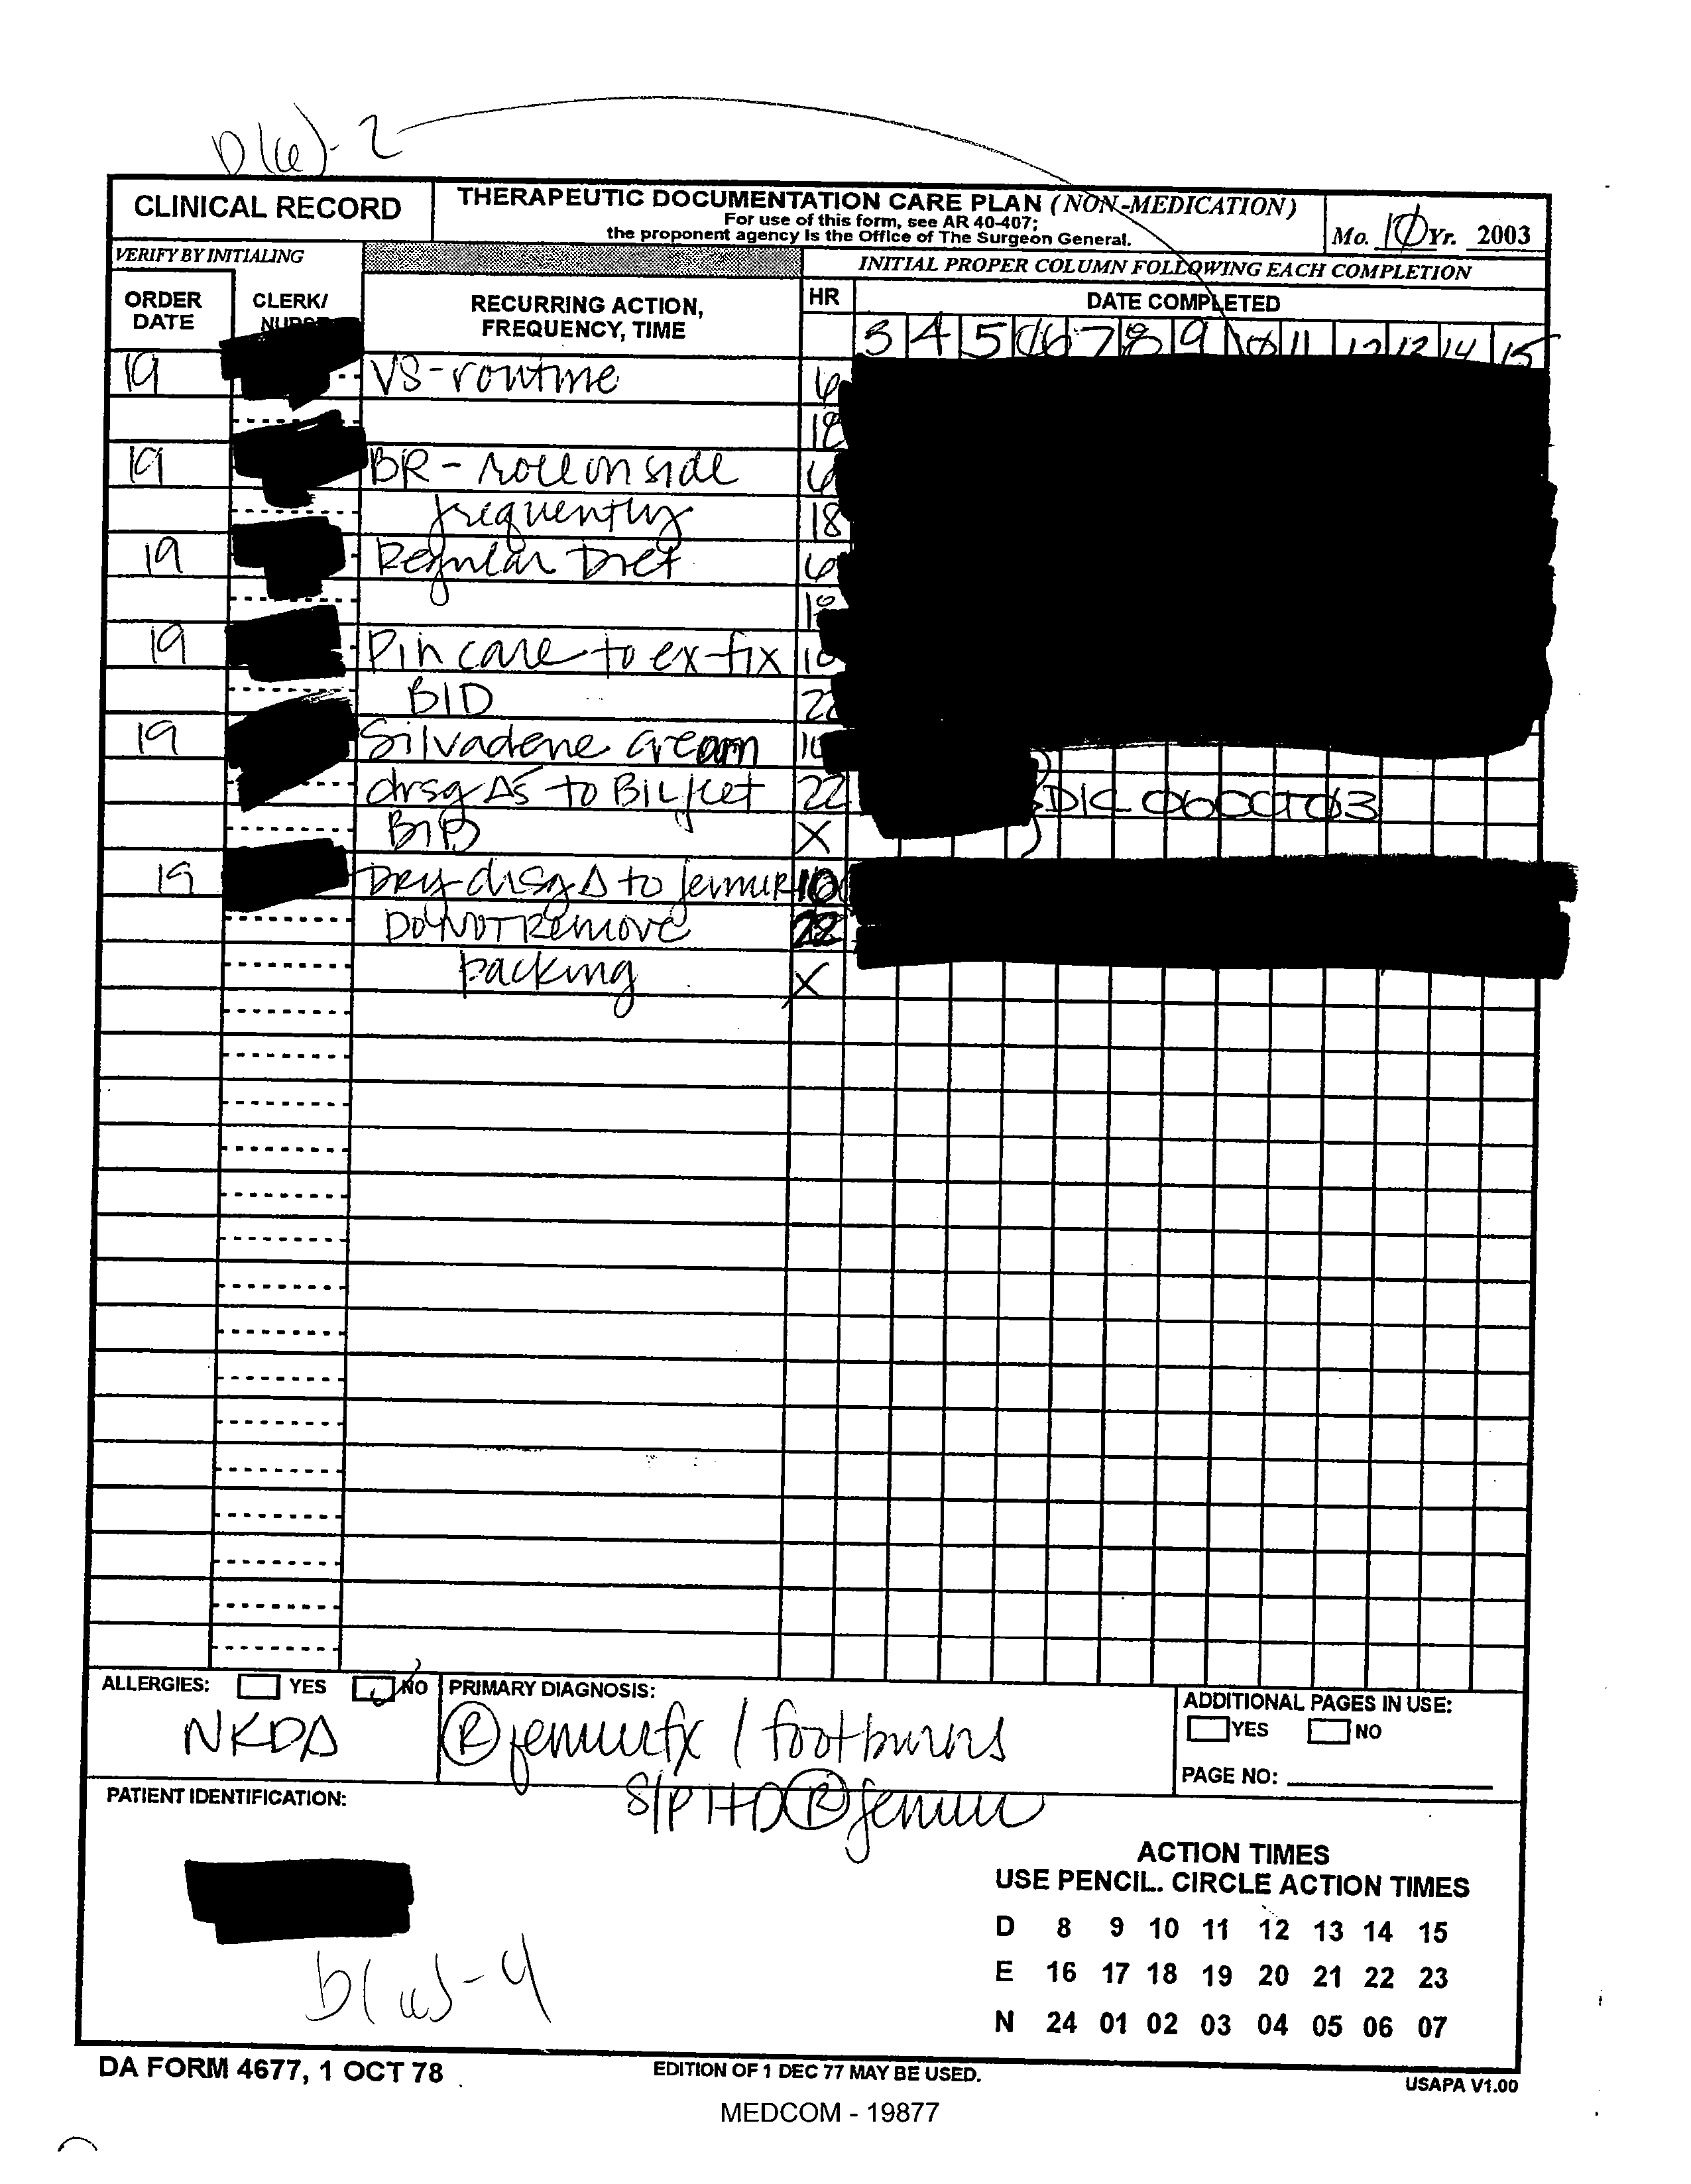 b(6)-2
CLINICAL RECORD
THERAPEUTIC DOCUMENTATION CARE PLAN (NON-MEDICATION)
For use of this form, see AR 40-407;
the proponent agency is the Office of The Surgeon General.
Mo. 10 Yr. 2003
VERIFY BY INITIALING
INITIAL PROPER COLUMN FOLLOWING EACH COMPLETION
ORDER DATE
CLERK/
RECURRING ACTION, FREQUENCY, TIME
HR
DATE COMPLETED
3 4 5 6 7 8 9 10 11 12 13 14 15
19 VS-routine 6
18
19 BR - roll on side 6
frequently 18
19 Regular Diet 6
18
19 Pin care to ex-fix 10
BID 22
19 Silvadene cream 10
drsg Δs to Bil feet 22 D/C 06OCT03
BID X
19 Dry drsg Δ to femur 10
DO NOT Remove 22
packing X
ALLERGIES: YES NO
NKDA
PRIMARY DIAGNOSIS:
Ⓡ femur fx / foot burns
S/P I+D Ⓡ femur
ADDITIONAL PAGES IN USE:
YES NO
PAGE NO:
PATIENT IDENTIFICATION:
b(6)-4
ACTION TIMES
USE PENCIL. CIRCLE ACTION TIMES
D 8 9 10 11 12 13 14 15
E 16 17 18 19 20 21 22 23
N 24 01 02 03 04 05 06 07
DA FORM 4677, 1 OCT 78
EDITION OF 1 DEC 77 MAY BE USED.
USAPA V1.00
MEDCOM - 19877